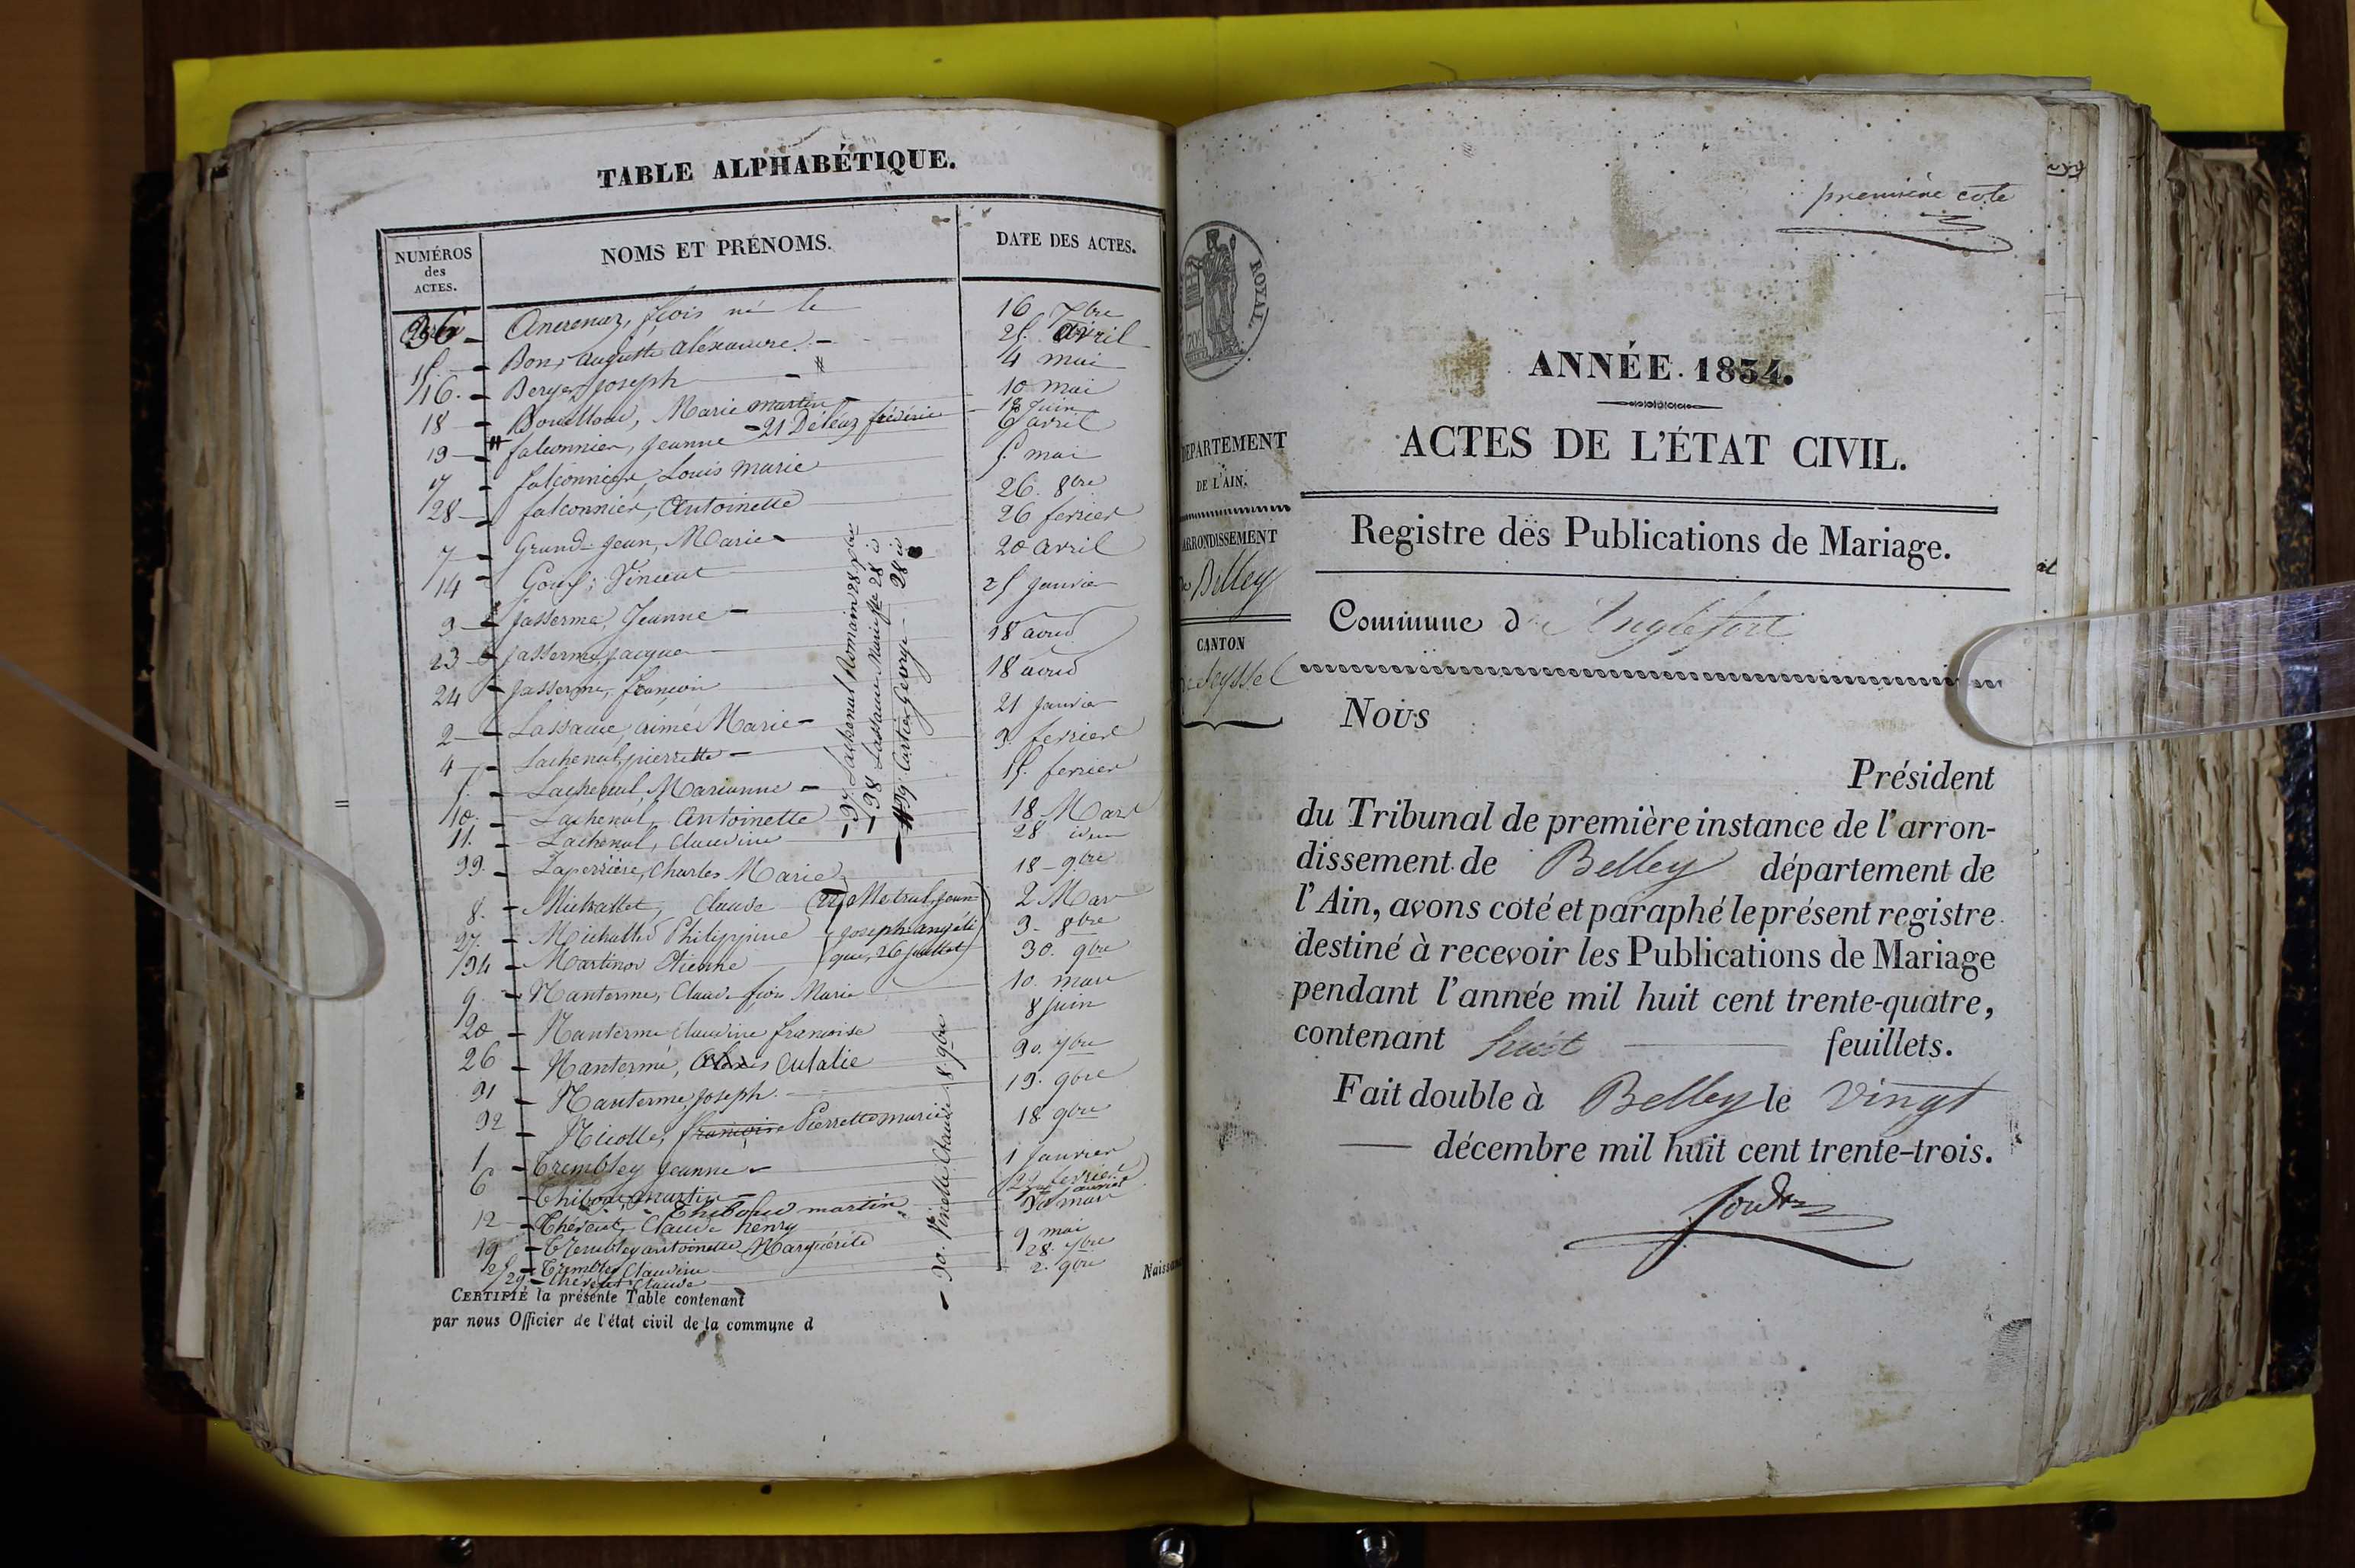 TABLE ALPHABÉTIQUE.
NUMÉROS des ACTES.
NOMS ET PRÉNOMS.
DATE DES ACTES.
36 - fcois né le 16 7bre
Bon, auguste alexandre - 25. avril
16. - Berger Joseph - 4 mai
18 - Marie martin - 10 mai
19 - falconnier, Jeanne - 21 Déléaz frédéric 6 avril
falconnier, Louis marie 5 mai
28 - falconnier, Antoinette 26. 8bre
7 - Grand-Jean, Marie - 26 fevrier
14 - Goux, Vincent 20 avril
3 - Jasserme, Jeanne - 25 Janvier
23 - Jasserme, Jacque 18 aoud
24 - Jasserme, françois 18 aoud
2 - Lassaue, aimée Marie - 21 Janvier
4 - Lachenal, pierrette - 9. fevrier
5. - Lachenal, Marianne - 15. fevrier
10. - Lachenal, Antoinette 18 Mars
11. - Lachenal, Claudine 28 idem
33. - Laperrière, Charles Marie 18 - 9bre
8. - Michallet, Claude (22, Metral, Jean 2 Mar
27. - Michallet Philippine (Joseph angéli 3 - 8bre
34 - Martinod Etienne (que, 26 juillet) 30. 9bre
9 - Nanterme, Claude fcois Marie 10. mars
20 - Nanterme Claudine francoise 8 Juin
26 - Nanterme, Eulalie 30. 7bre
31 - Nanterme, Joseph. 13. 9bre
32 - Nicollet, francoise Pierrette marie 18 9bre
1 - Trembley Jeanne - 1 Janvier
6 - Thiboud, martin - Thiboud martin 22 fevrier
12 - Thévent, Claude henry 30 mars
Trembley antoinette Marguerite 9 mai
25 - Trembley Claudine 28. 7bre
29 - Thévent Claude 2. 9bre
37 Lachenal Romain 28 xbre
38 Lassaue Marie fte 28 id
39 Cartier George - 28 id
- 30. Pinette Claude 8. 9bre
CERTIFIÉ la présente Table contenant
par nous Officier de l'état civil de la commune d
première cote
ROYAL.
ANNÉE 1834.
ACTES DE L'ÉTAT CIVIL.
DEPARTEMENT
DE L'AIN.
ARRONDISSEMENT
de Belley
CANTON
de Seyssel
Registre des Publications de Mariage.
Commune d'Anglefort
NOUS
Président
du Tribunal de première instance de l'arron-
dissement de Belley département de
l'Ain, avons coté et paraphé le présent registre
destiné à recevoir les Publications de Mariage
pendant l'année mil huit cent trente-quatre,
contenant huit feuillets.
Fait double à Belley le vingt
décembre mil huit cent trente-trois.